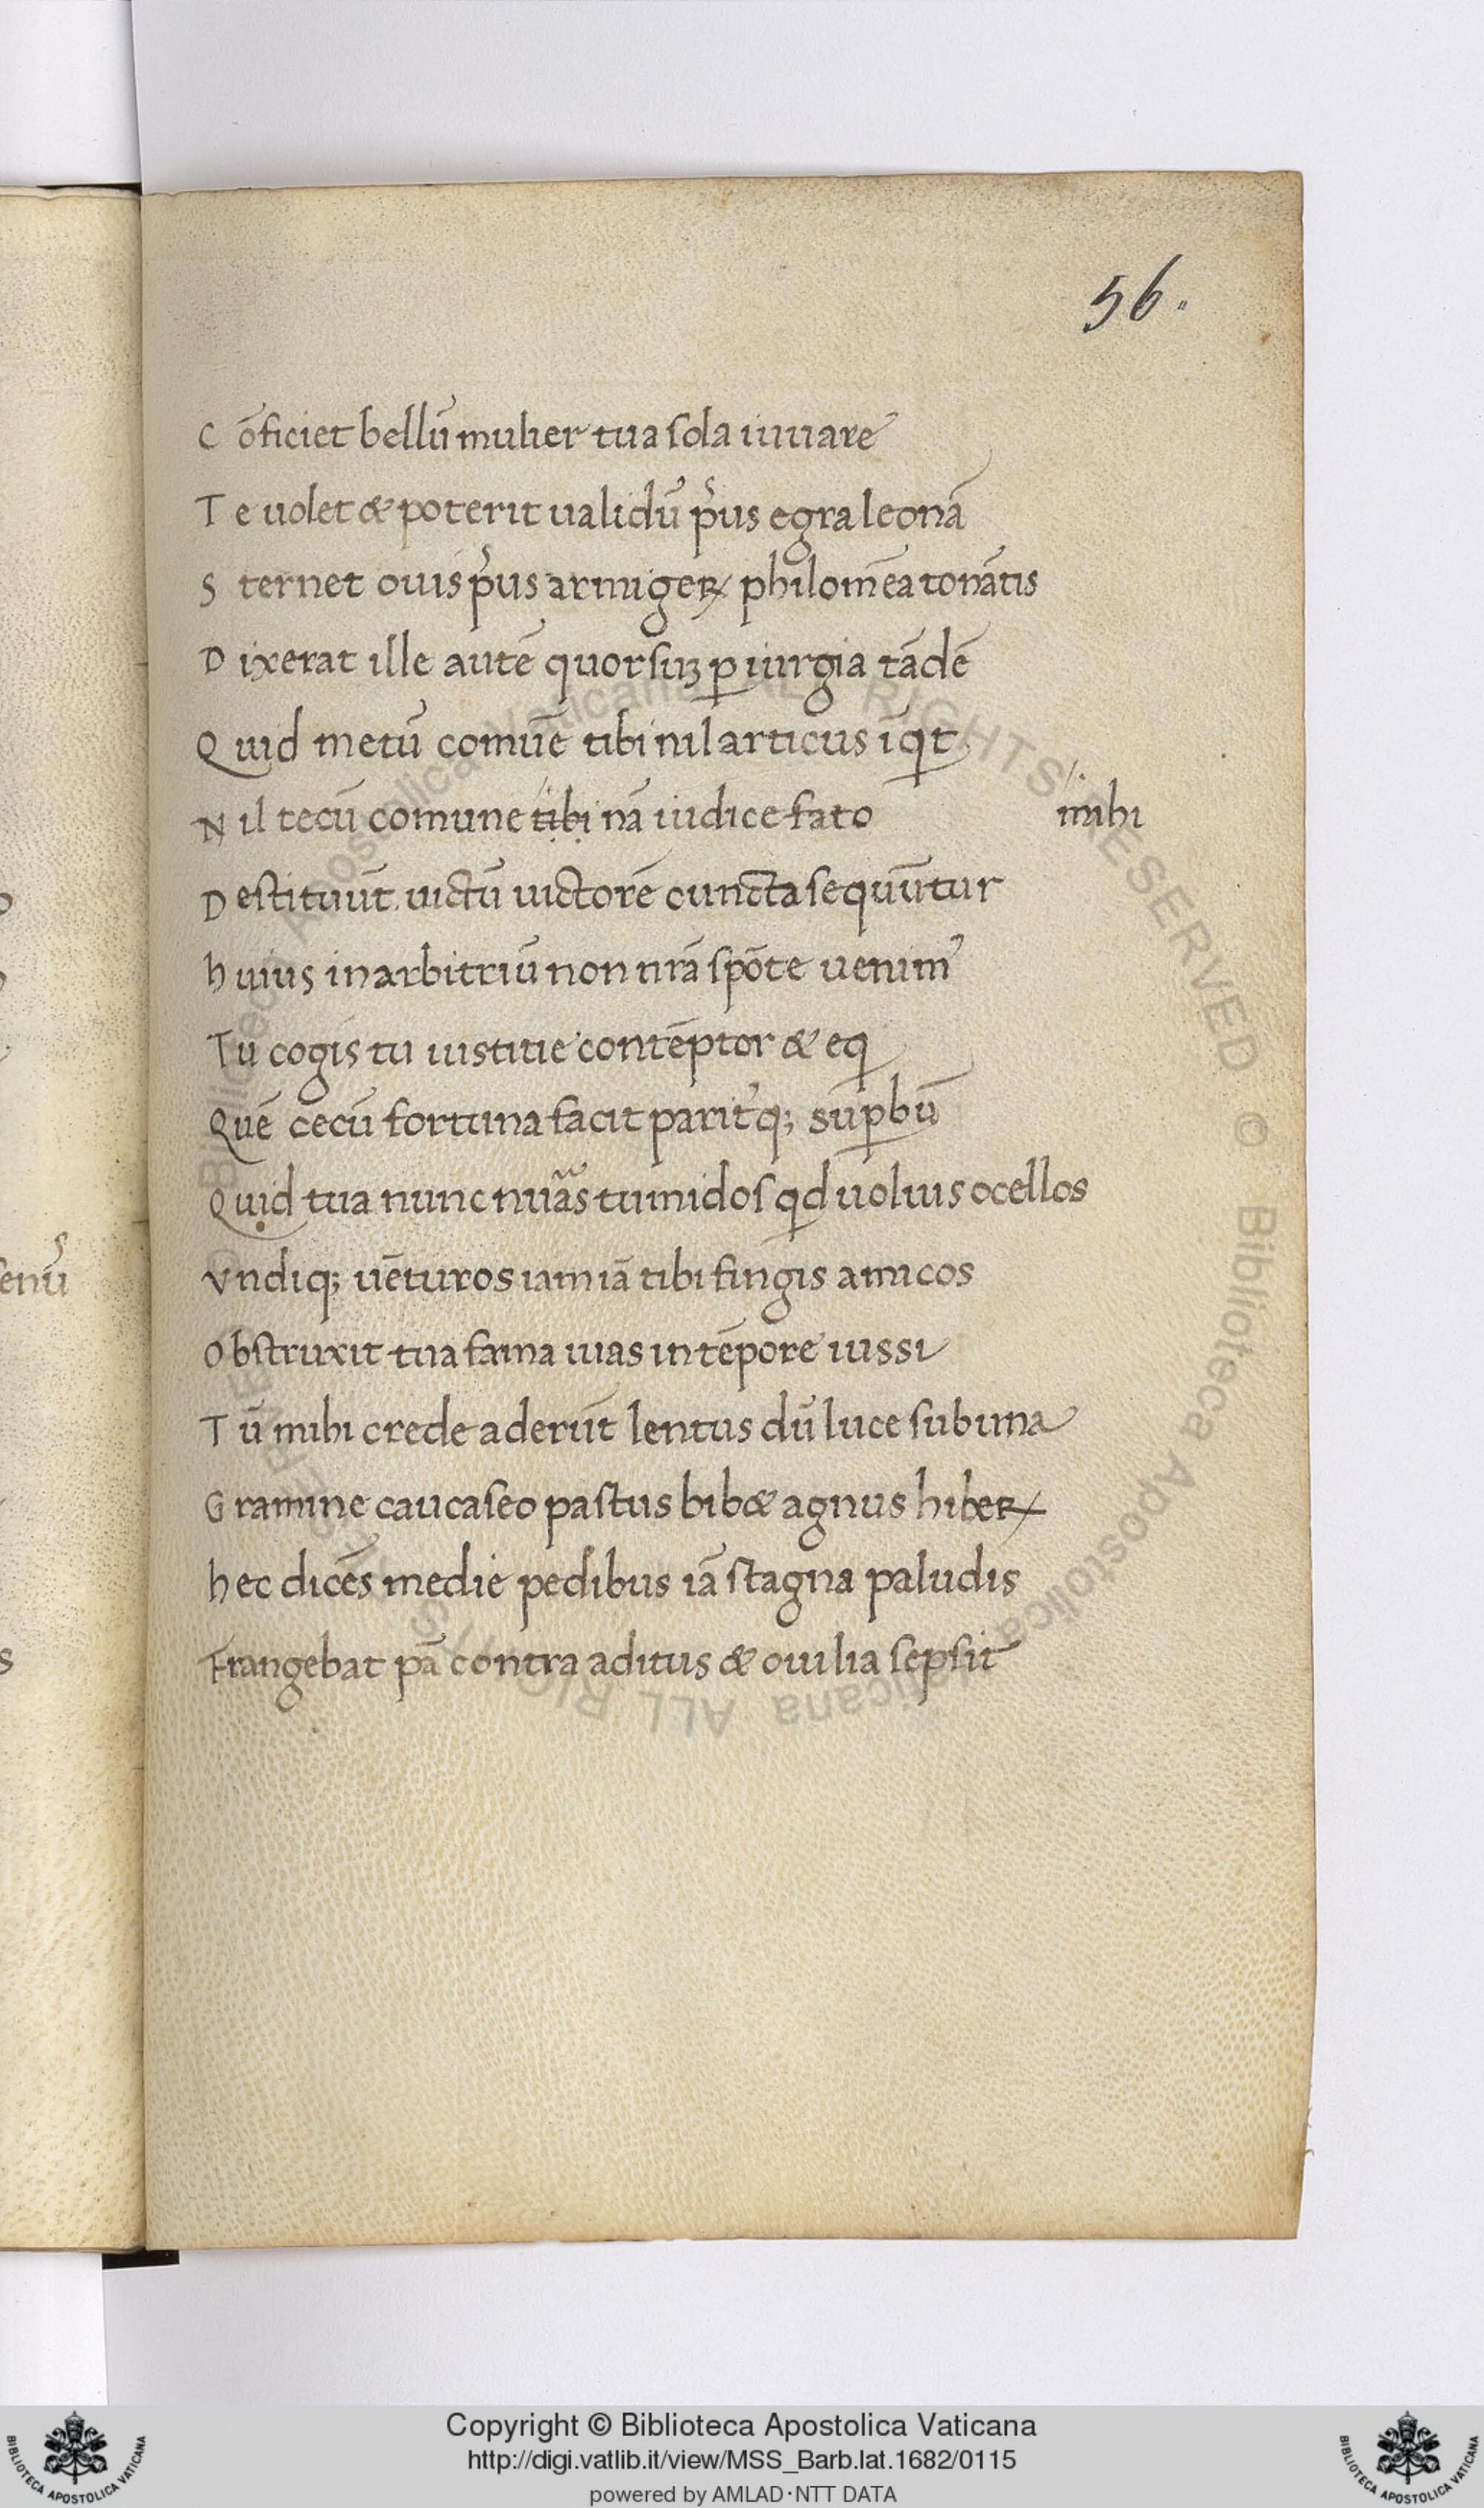 56.
C ōficiet bellū mulier tua sola iuuare
T e uolet & poterit ualidū p̄us egra leonā
S ternet ouis p̄us armigerꝝ philomēa tonātis
D ixerat ille autē quorsuꝫ ꝑ iurgia tādē
Q uid metū comūe tibi nil articus īqt
N il tecū comune tibi nā iudice fato mihi
D estituūt uictū uictorē cuncta sequūtur
h uius in arbitriū non nrā spōte uenimꝰ
Tu cogis tu iustitie contēptor & eq
Quē cecū fortuna facit parit'qꝫ suꝑbū
Quid tua nunc nuas tumidos qd uoluis ocellos
Vndiqꝫ uēturos iam iā tibi fingis amicos
Obstruxit tua fama uias in tēpore iussi
T ū mihi crede aderūt lentus dū luce sub una
G ramine caucaseo pastus bib& agnus hiberꝝ
h ec dicēs medie pedibus iā stagna paludis
Frangebat pā contra aditus & ouilia sepsit
enū
Copyright © Biblioteca Apostolica Vaticana
http://digi.vatlib.it/view/MSS_Barb.lat.1682/0115
powered by AMLAD·NTT DATA